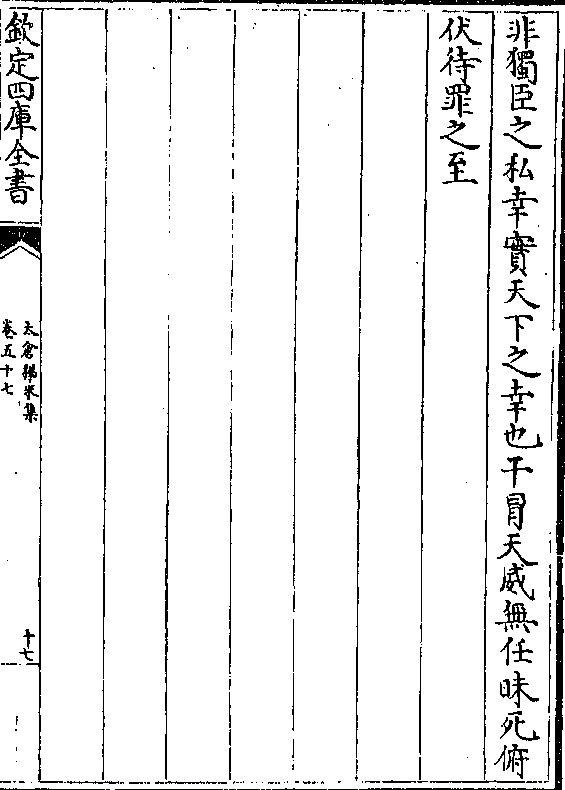 非獨臣之私幸實天下之幸也干冒天威無任昧死俯
伏待罪之至
欽定四庫全書
太倉稊米集
卷五十七
十七